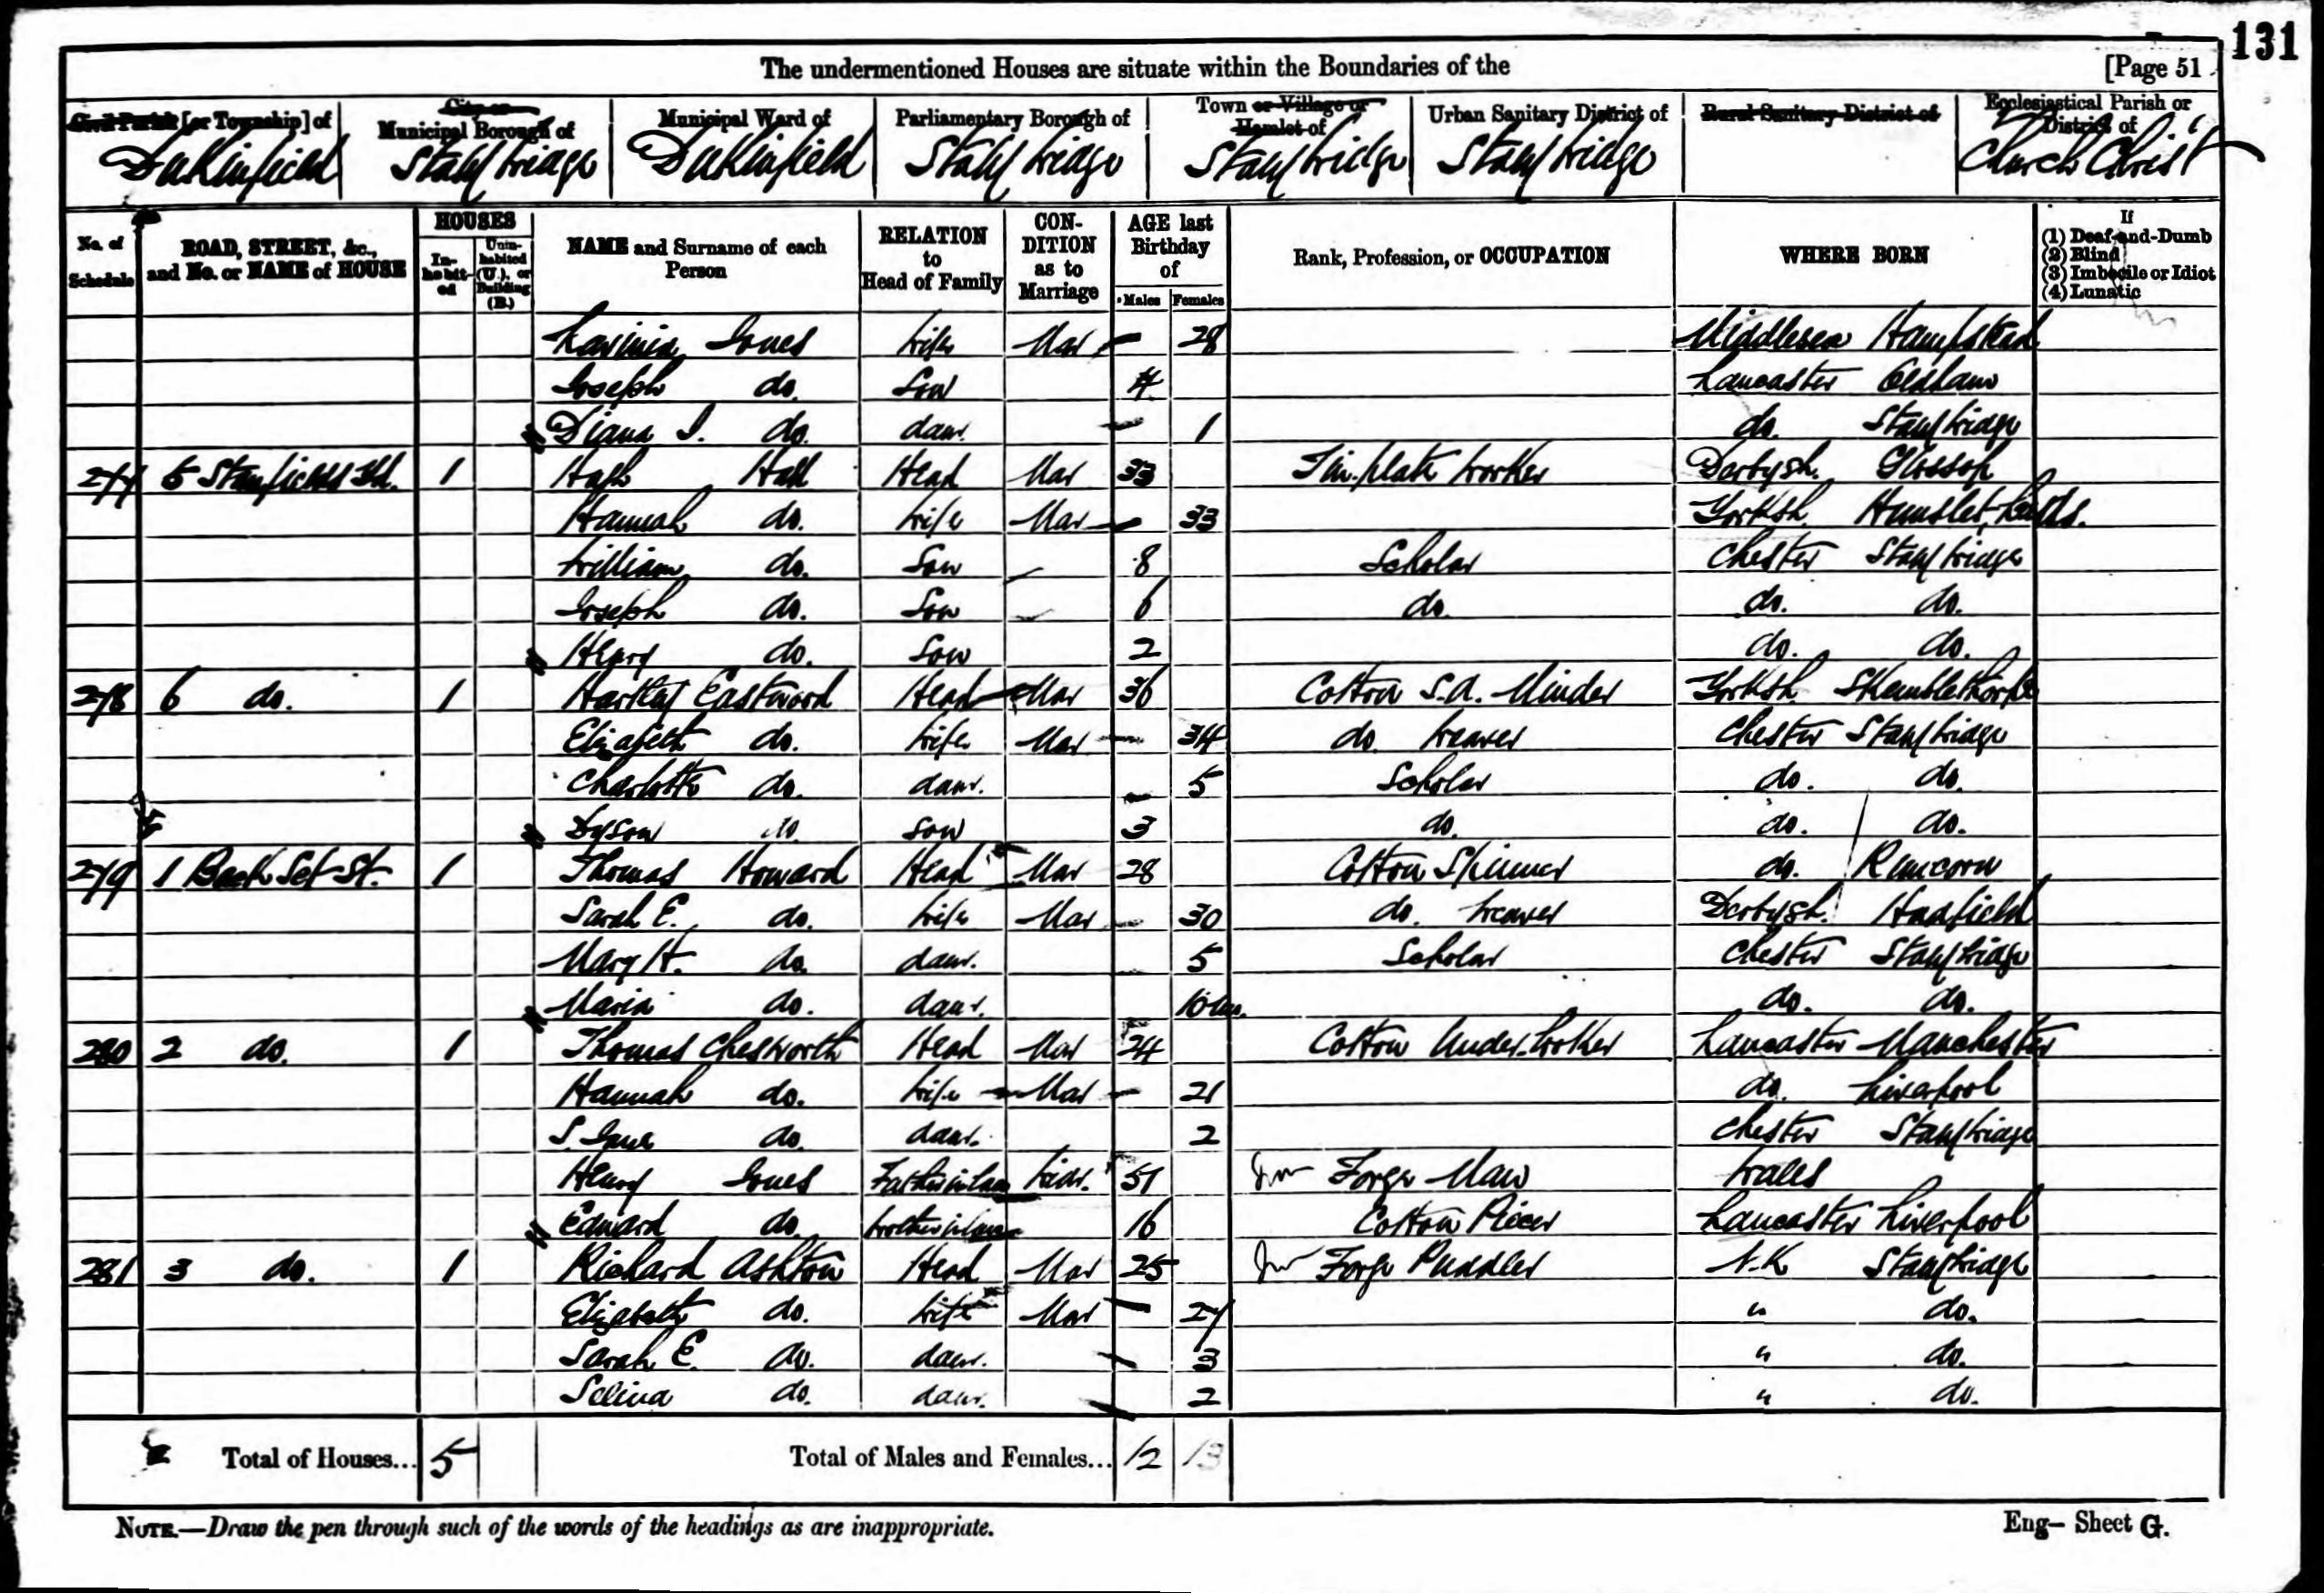 131
The undermentioned Houses are situate within the Boundaries of the [Page 51
Civil Parish [or Township] of City or Municipal Borough of Municipal Ward of Parliamentary Borough of Town or Village or Hamlet of Urban Sanitary District of Rural Sanitary District of Ecclesiastical Parish or District of
Dukinfield Stalybridge Dukinfield Stalybridge Stalybridge Stalybridge Christ Church
No. of Schedule ROAD, STREET, &c., and No. or NAME of HOUSE HOUSES Inhabited Uninhabited (U.), or Building (B.) NAME and Surname of each Person RELATION to Head of Family CONDITION as to Marriage AGE last Birthday of Males Females Rank, Profession, or OCCUPATION WHERE BORN If (1) Deaf-and-Dumb (2) Blind (3) Imbecile or Idiot (4) Lunatic
Lavinia Jones Wife Mar 28 Middlesex Hampstead
Joseph do. Son 4 Lancaster Oldham
Diana J. do. daur. 1 do. Stalybridge
277 5 Stanfields Yd. 1 Hugh Hall Head Mar 33 Tin. plate Worker Derbysh. Glossop
Hannah do. Wife Mar 33 Yorksh. Hunslet, Leeds.
William do. Son 8 Scholar Chester Stalybridge
Joseph do. Son 6 do. do. do.
Henry do. Son 2 do. do.
278 6 do. 1 Hartley Eastwood Head Mar 36 Cotton S.A. Minder Yorksh. Skemblethorpe
Elizabeth do. Wife Mar 34 do Weaver Chester Stalybridge
Charlotte do. daur. 5 Scholar do. do.
Dyson do. Son 3 do. do. do.
279 1 Back Set St. 1 Thomas Howard Head Mar 28 Cotton Spinner do. Runcorn
Sarah E. do. Wife Mar 30 do. Weaver Derbysh. Hadfield
Mary H. do. daur. 5 Scholar Chester Stalybridge
Maria do. daur. 10 ms. do. do.
280 2 do. 1 Thomas Chesworth Head Mar 24 Cotton Under. Looker Lancaster Manchester
Hannah do. Wife Mar 21 do. Liverpool
S. Jane do. daur. 2 Chester Stalybridge
Henry Jones Father in law Widr. 51 Forge Man Wales
Edward do. brother in law 16 Cotton Piecer Lancaster Liverpool
281 3 do. 1 Richard Ashton Head Mar 25 Forge Puddler N.K Stalybridge
Elizabeth do. Wife Mar 27 " do.
Sarah E. do. daur. 3 " do.
Selina do. daur. 2 " do.
Total of Houses... 5 Total of Males and Females... 12 13
NOTE.—Draw the pen through such of the words of the headings as are inappropriate. Eng— Sheet G.